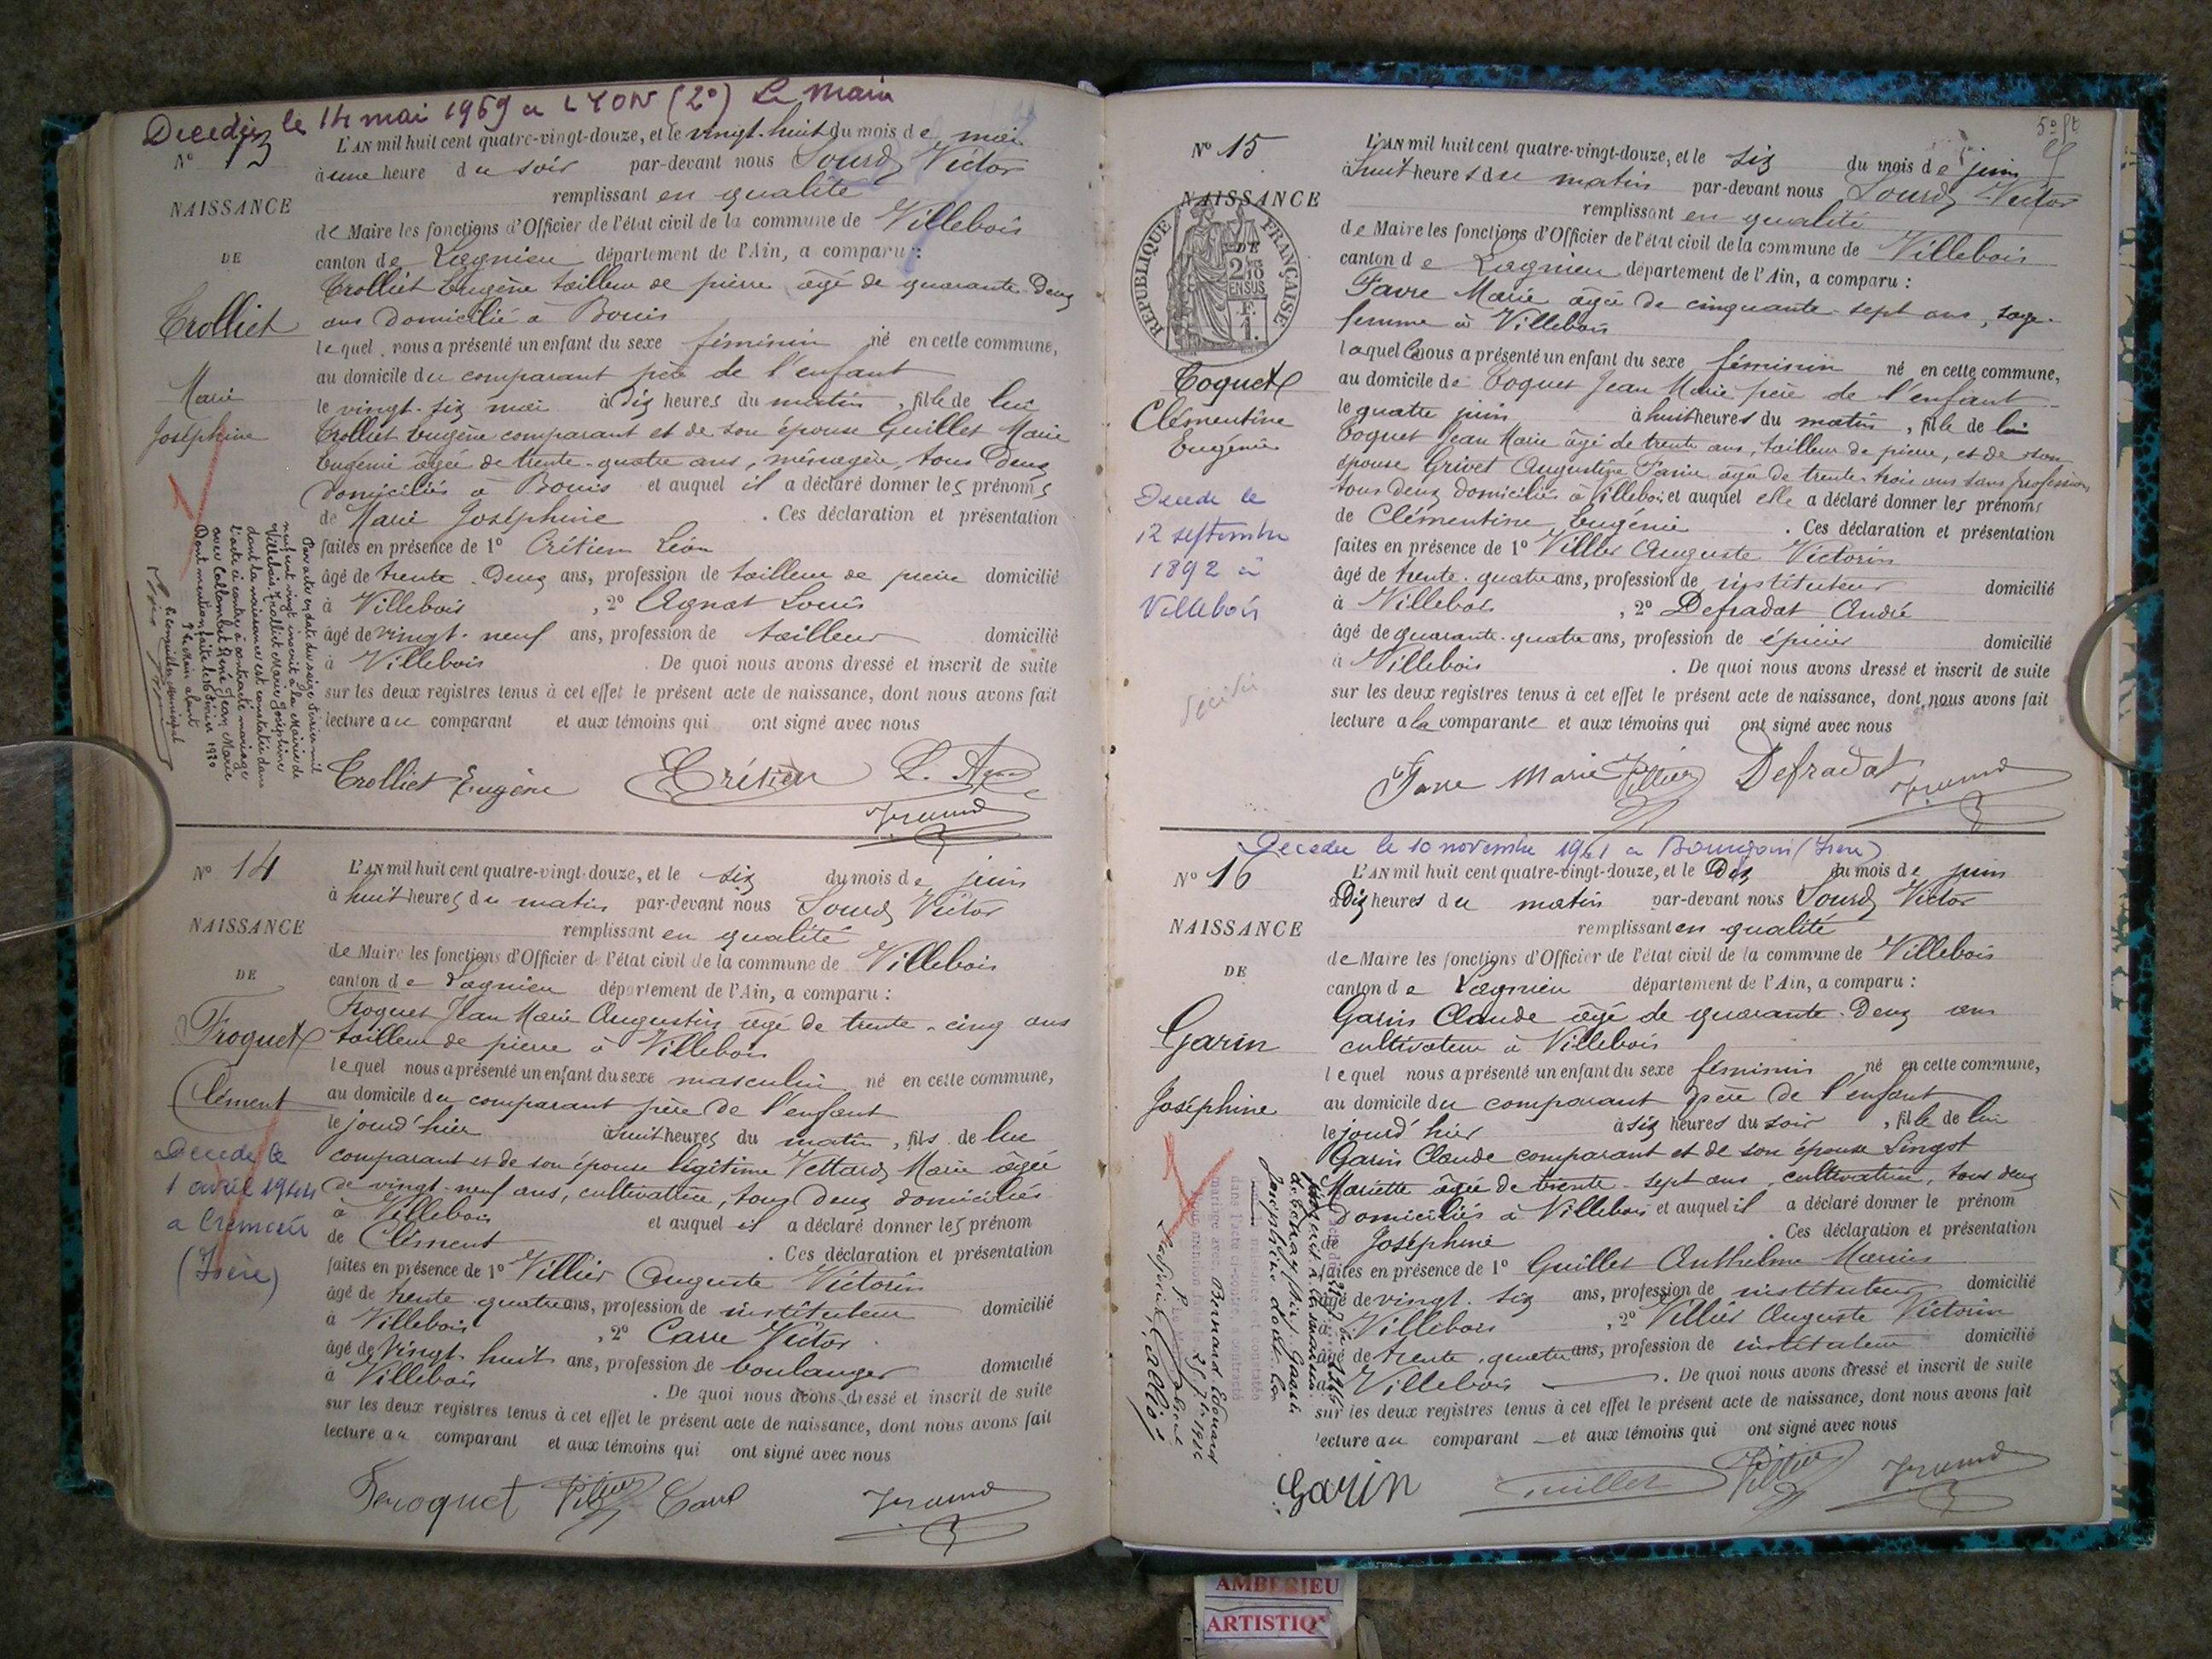 Decedée le 14 mai 1969 a LYON (2°) Le Maire
N° 13
NAISSANCE
DE
Trolliet
Marie
Joséphine
L'AN mil huit cent quatre-vingt-douze, et le vingt-huit du mois de mai
à une heure du soir par-devant nous Sourd Victor
remplissant en qualité
de Maire les fonctions d'Officier de l'état civil de la commune de Villebois
canton de Lagnieu département de l'Ain, a comparu :
Trolliet Eugène tailleur de pierre âgé de quarante deux
ans domicilié à Bouis
lequel nous a présenté un enfant du sexe féminin né en cette commune,
au domicile du comparant père de l'enfant
le vingt-six mai à dix heures du matin, fille de lui
Trolliet Eugène comparant et de son épouse Guillet Marie
Eugénie âgée de trente-quatre ans, ménagère, tous deux
domiciliés à Bouis et auquel il a déclaré donner les prénoms
de Marie Joséphine . Ces déclaration et présentation
faites en présence de 1° Crétien Léon
âgé de trente-deux ans, profession de tailleur de pierre domicilié
à Villebois , 2° Agnat Louis
âgé de vingt-neuf ans, profession de tailleur domicilié
à Villebois . De quoi nous avons dressé et inscrit de suite
sur les deux registres tenus à cet effet le présent acte de naissance, dont nous avons fait
lecture au comparant et aux témoins qui ont signé avec nous
Par acte en date du seize février mil
neuf cent vingt inscrit à la Mairie de
Villebois, Trolliet Marie Joséphine
dont la naissance est constatée dans
l'acte ci-contre a contracté mariage
avec Collombet René Jean Marie
Dont mention faite le 16 février 1920
Trolliet Eugène Crétien
N° 14
NAISSANCE
DE
Froquet
Clément
Decede le
1 avril 1944
a Cremieu
(Isère)
L'AN mil huit cent quatre-vingt-douze, et le six du mois de juin
à huit heures du matin par-devant nous Sourd Victor
remplissant en qualité
de Maire les fonctions d'Officier de l'état civil de la commune de Villebois
canton de Lagnieu département de l'Ain, a comparu :
Froquet Jean Marie Augustin âgé de trente-cinq ans
tailleur de pierre à Villebois
lequel nous a présenté un enfant du sexe masculin né en cette commune,
au domicile du comparant père de l'enfant
le jourd'hier à huit heures du matin, fils de lui
comparant et de son épouse légitime Vettard Marie âgée
de vingt-neuf ans, cultivatrice, tous deux domiciliés
à Villebois et auquel il a déclaré donner les prénom
de Clément . Ces déclaration et présentation
faites en présence de 1° Villier Auguste Victorin
âgé de trente-quatre ans, profession de instituteur domicilié
à Villebois , 2° Carre Victor
âgé de vingt-huit ans, profession de boulanger domicilié
à Villebois . De quoi nous avons dressé et inscrit de suite
sur les deux registres tenus à cet effet le présent acte de naissance, dont nous avons fait
lecture au comparant et aux témoins qui ont signé avec nous
Feroquet Villier Carre
N° 15
NAISSANCE
REPUBLIQUE FRANÇAISE
2/10 EN SUS
F. 1.
Coquet
Clémentine
Eugénie
Decede le
12 septembre
1892 à
Villebois
L'AN mil huit cent quatre-vingt-douze, et le six du mois de juin
à huit heures du matin par-devant nous Sourd Victor
remplissant en qualité
de Maire les fonctions d'Officier de l'état civil de la commune de Villebois
canton de Lagnieu département de l'Ain, a comparu :
Favre Marie âgée de cinquante-sept ans, sage-
femme à Villebois
laquelle nous a présenté un enfant du sexe féminin né en cette commune,
au domicile de Coquet Jean Marie père de l'enfant
le quatre juin à huit heures du matin, fille de lui
Coquet Jean Marie âgé de trente ans, tailleur de pierre, et de son
épouse Grivet Augustine âgée de trente-trois ans sans profession
tous deux domiciliés à Villebois et auquel elle a déclaré donner les prénoms
de Clémentine Eugénie . Ces déclaration et présentation
faites en présence de 1° Villier Auguste Victorin
âgé de trente-quatre ans, profession de instituteur domicilié
à Villebois , 2° Defradat André
âgé de quarante-quatre ans, profession de épicier domicilié
à Villebois . De quoi nous avons dressé et inscrit de suite
sur les deux registres tenus à cet effet le présent acte de naissance, dont nous avons fait
lecture a la comparante et aux témoins qui ont signé avec nous
Favre Marie Villier Defradat
Decedee le 10 novembre 1941 a Bourgoin (Isere)
N° 16
NAISSANCE
DE
Garin
Joséphine
L'AN mil huit cent quatre-vingt-douze, et le dix du mois de juin
à dix heures du matin par-devant nous Sourd Victor
remplissant en qualité
de Maire les fonctions d'Officier de l'état civil de la commune de Villebois
canton de Lagnieu département de l'Ain, a comparu :
Garin Claude âgé de quarante-deux ans
cultivateur à Villebois
lequel nous a présenté un enfant du sexe féminin né en cette commune,
au domicile du comparant père de l'enfant
le jourd'hier à six heures du soir, fille de lui
Garin Claude comparant et de son épouse Singot
Mariette âgée de trente-sept ans, cultivatrice, tous deux
domiciliés à Villebois et auquel il a déclaré donner le prénom
de Joséphine . Ces déclaration et présentation
faites en présence de 1° Guillet Anthelme Marius
âgé de vingt-six ans, profession de instituteur domicilié
à Villebois , 2° Villier Auguste Victorin
âgé de trente-quatre ans, profession de instituteur domicilié
à Villebois . De quoi nous avons dressé et inscrit de suite
sur les deux registres tenus à cet effet le présent acte de naissance, dont nous avons fait
lecture au comparant et aux témoins qui ont signé avec nous
mariage avec Bernard Edouard
Garin Guillet Villier
AMBERIEU
ARTISTIQ